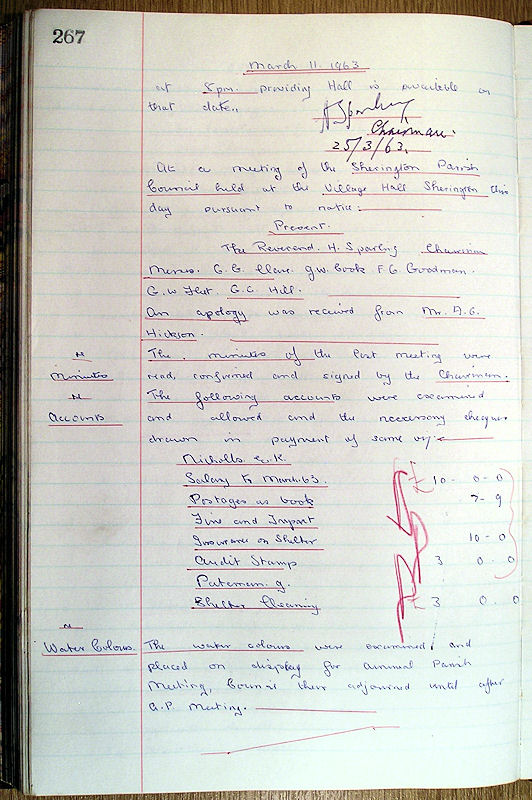 267
March 11. 1963
at 8pm. providing Hall is available on
that date.
H Sparling
Chairman.
25/3/63.
At a meeting of the Sherington Parish
Council held at the Village Hall Sherington this
day pursuant to notice:
Present.
The Reverend. H. Sparling Chairman
Messrs. G.W. Cook. F.G. Goodman.
G.W. G.C. Hill.
An apology was received from Mr. A.G.
Hickson.
Minutes
The minutes of the last meeting were
read, confirmed and signed by the Chairman.
Accounts
The following accounts were examined
and allowed and the necessary cheques
drawn in payment of same viz:
Nicholls E.R.
Salary to March.63. £10 - 0 - 0
Postages as book 7 - 9
Fire and
Insurance on Shelter 10 - 0
Audit Stamp 3 0. 0
Pateman. G.
Shelter Cleaning £ 3 0. 0
Water Colours.
The water colours were examined and
placed on display for Annual Parish
Meeting, Council then adjourned until after
A.P. Meeting.